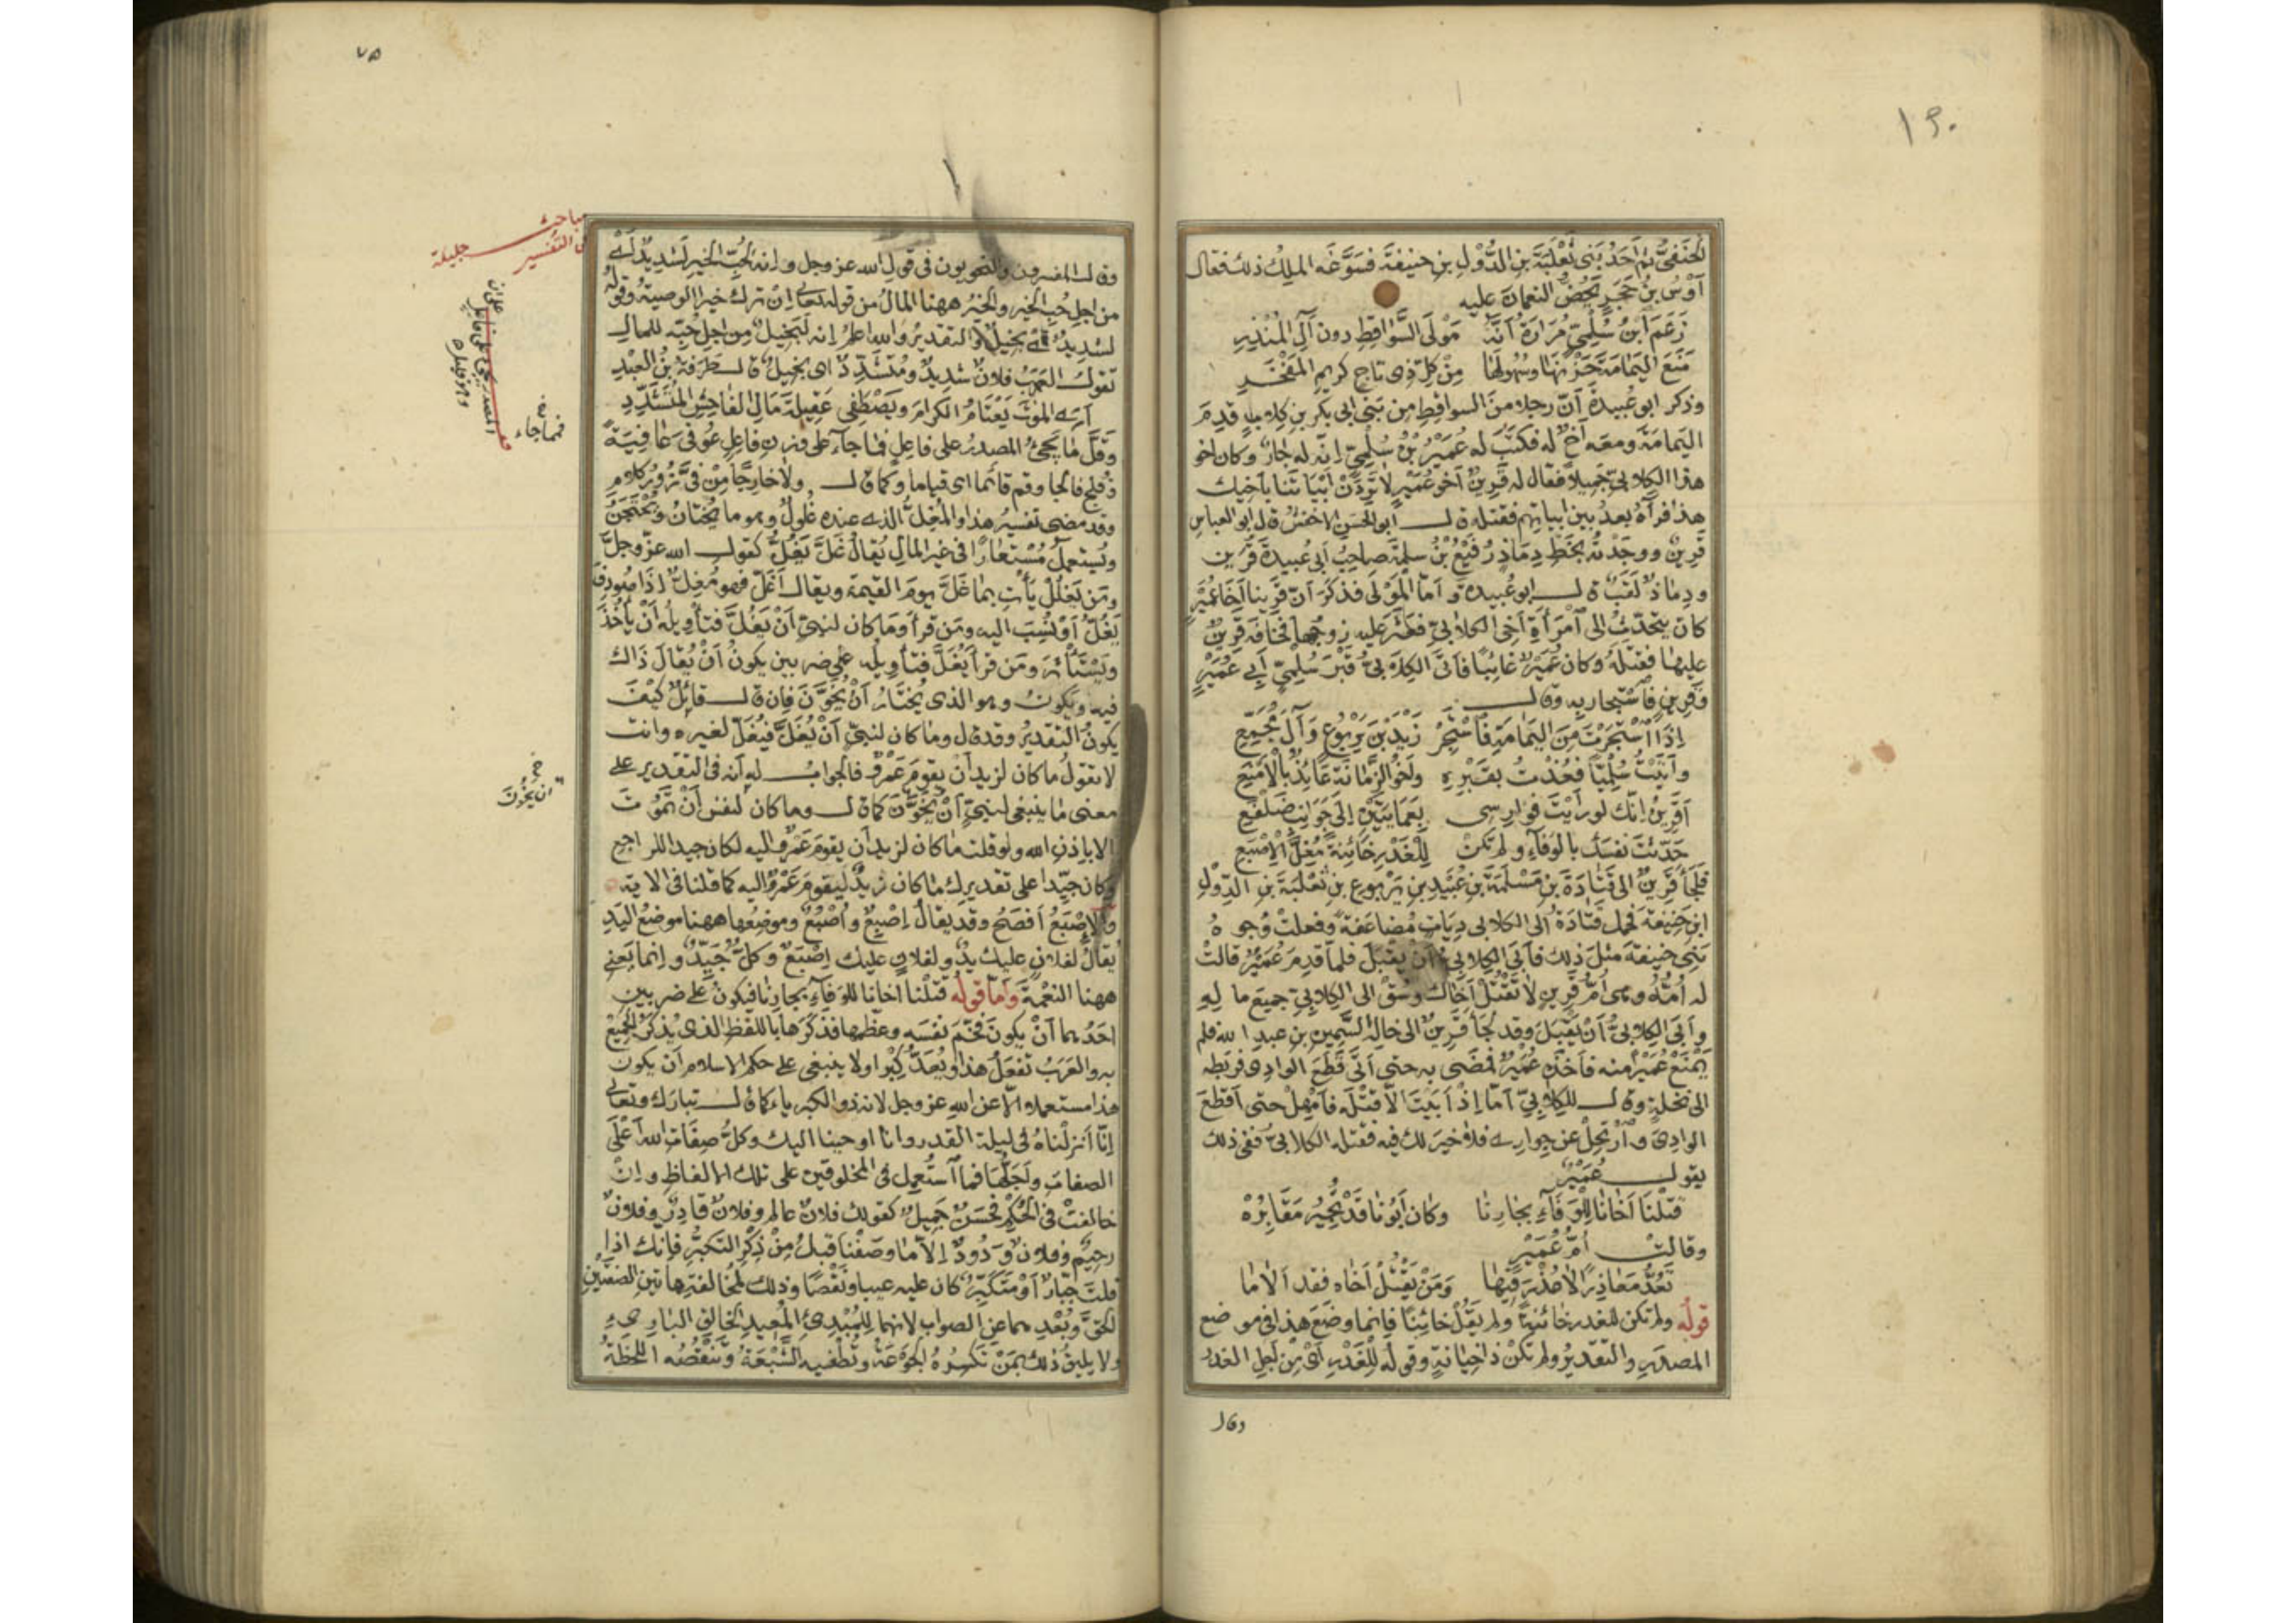 ١٩٠
الحنفىُّ ثم أَحَدُ بَنى ثَعْلَبَةَ بنِ الدُّوْلِ بنِ حنيفةَ فسَوَّغَه الملِكُ ذلك فقال
أَوْسُ بنُ حَجَرٍ يَحُضّ النعمانَ عليه
زَعَمَ ابْنُ سُلْمِىٍّ مُرَارَةُ أنَّهُ مَوْلَى السَّواقِطِ دون آلِ المُنْذِرِ
مَنَعَ اليَمَامَةَ حَزْنَهَا وسُهُولَهَا مِنْ كلّ ذِى تاجٍ كريمِ المَفْخَرِ
وذكر ابو عُبيدةَ أنّ رجلا منَ السواقطِ مِن بَنى ابى بكرِ بنِ كِلابٍ قدِمَ
اليمامَةَ ومعَه أخٌ له فكتَبَ له عُمَيْرُ بْنُ سُلْمِىٍّ اِنّه له جارٌ وكان اخو
هذا الكِلابىِّ جَميلاً فقال له قَرِينٌ أَخو عُمَيرٍ لا تَرِدَنْ اَبْيَاتَنَا بأخيك
هذا فرَآهُ بعدُ بين ابياتِهم فقتله قال ابو الحَسَنِ الاخفشُ قال ابو العباسِ
قَرِينٌ ووجَدْتُه بخطِّ دِمَاذٍ رُفَيْعُ بْنُ سلمةَ صاحِبُ أبى عُبيدةَ قَرِّين
ودِمَاذٌ لَقَبٌ قال ابو عُبيدة وأمّا المَوْلَى فذَكَرَ أنّ قَرِينا أَخَا عُمَيْرٍ
كان يتحدّثُ الى آمْرَأَةِ أخِى الكلابىّ فعَثَر عليه زوجُها فخافَه قَرِينٌ
عليها فقتَلَهُ وكان عُمَيرٌ غائبًا فأتَى الكِلابىُّ قَبْرَ سُلْمِىٍّ أبى عُمَيْرٍ
وقَرِينٍ فآسْتجار به وقال
اِذَا آسْتَجَرْتَ مِنَ اليَمَامَةِ فآسْتَجِرْ زَيْدَ بْنَ يَرْبُوعٍ وَآلَ مُجَمِّعِ
وأَتَيْتُ سُلْمِيًّا فعُذْتُ بقَبْرِهِ وأخُو الزَّمَانَةِ عَائِذٌ بالأَمْنَعِ
أَقَرِينُ اِنّك لو رأَيْتَ فوارِسى بعَمَايَتَيْنِ إلى جَوَانِبِ ضَلْفَعِ
حَدَّثْتَ نفسَكَ بالوَفَآءِ ولم تكنْ لِلغَدْرِ خَائِنَةً مُغِلَّ الاِصْبَعِ
فلَجَأَ قَرِينٌ الى قَتَادَةَ بنِ مَسْلَمَةَ بنِ عُبَيْدِ بنِ يَرْبوعِ بن ثَعْلَبَةَ بنِ الدّوْلِ
ابنِ حنيفة فحمل قَتَادَةُ الى الكلابى دِيَاتٍ مُضاعَفَةً وفعلتْ وُجوهُ
بَنِى حَنيفةَ مثلَ ذلك فأَبَى الكلابىُّ أنْ يقبَلَ فلمّا قدِمَ عُمَيْرٌ قالتْ
له أُمُّهُ وهى أُمُّ قَرِينٍ لا تَقْتُلْ أخَاكَ وسُقْ الى الكِلابِىّ جميعَ ما لِهِ
وأَبَى الكِلابىُّ أنْ يَقْبَلَ وقد لَجَأَ قَرِينٌ الى خالِه السَّمِينِ بنِ عبدِ الله فلم
يَمْنَعْ عُمَيْرًا منه فأخذَهُ عُمَيْرٌ فمضَى به حتى أتَى قَطَعَ الوَادِىَ فرَبَطه
الى نخلةٍ وقال للكلابِىِّ أمّا إذْ أَبَيْتَ الّا قَتْلَه فأمْهِلْ حتى أقطَعَ
الوادِىَ وآرْتَحِلْ عن جوارى فلا خيرَ لك فيه فقتله الكلابىُّ ففى ذلك
يقول عُمَيْرٌ
قتَلْنَا أَخَانَا لِلْوَفَآءِ بجارِنَا وكان أبُونَا قَدْ تُجِيرُ مَقَابِرُهْ
وقالتْ أُمُّ عُمَيْرٍ
تَعُدُّ مَعَاذِرًا لا عُذْرَ فِيهَا وَمَنْ يَقْتُلْ أَخَاه فقد اَلَامَا
قوله ولم تكن للغدر خائنةً ولم يَقُل خائِنًا فانما وضَعَ هذا فى موضع
المصدَرِ والتقديرُ ولم تكنْ ذا خِيَانَةٍ وقوله لِلْغَدْرِ أىْ مِن أجلِ الغدر
وقال
٧٥
وقال المفسرون والنحويون فى قولِ الله عز وجل وانه لحُبِّ الخيرِ لَشديدٌ أى
من اجلِ حُبّ الخير والخيرُ ههنا المالُ من قوله تعالى اِنْ ترك خيرا الوصيةُ وقوله
لشديدٌ أى بخيلٌ والتقديرُ والله اعلمُ إنه لَبَخيلٌ مِن اجل حُبّه للمالِ
تقول العَرَبُ فلانٌ شديدٌ ومُتَشَدِّدٌ اى بخيلٌ قال طَرَفةُ بْنُ العَبْدِ
أرى الموْتَ يَعْتَامُ الكرامَ ويَصْطَفِى عَقِيلَةَ مَالِ الفَاحِشِ المُتَشَدِّدِ
وقَلَّ مَا يَجِىءُ المصدرُ على فاعِلٍ فمَا جآءَ على وزنِ فاعِلٍ عُوفىَ عَافِيَةً
وفُلِجَ فالجا وقم قائما اى قياما وكما قال ولا خارِجًا مِنْ فِىَّ زُورُ كلامِ
وقد مضى تفسيرُ هذا والمُغِلُّ الذى عنده غُلُولٌ وهو ما يُخْتانُ ويُحْتَجَنُ
ويُستعملُ مُسْتعَارًا فى غير المالِ يُقالُ غَلَّ يَغُلُّ كقول الله عزّ وجلَّ
ومَن يَغْلُلْ يَأْتِ بمَا غَلَّ يومَ القيمة ويقال أَغَلَّ فهو مُغِلٌّ إذَا صُودِفَ
يَغُلُّ أوْ نُسِبَ اليه ومَن قرأ ومَا كان لنبىّ أنْ يَغُلَّ فتأويلُه أنْ يَأْخُذَ
ويَسْتَأْثِرَ ومَن قرأ يُغَلَّ فتأويلُه على ضربين يكونُ أنْ يُقالَ ذاك
فيه ويكونُ وهو الذى يُخْتارُ أنْ يُخَوَّنَ فإن قال قائلٌ كيْفَ
يكونُ التقديرُ وقد قال وما كان لنبىٍّ أنْ يُغَلَّ فيُغَلّ لغيره وانت
لا تقولُ ما كان لزيدٍ أن يقومَ عَمْرٌو فالجوابُ له أنه فى التقدير على
معنى مَا ينبغى لنبىٍّ أنْ يُخَوَّنَ كما قال وما كان لنفسٍ أنْ تَمُوتَ
الا باِذنِ الله ولو قلتَ ما كان لزيدٍ أن يقومَ عَمْرٌو اليه لكان جيدا للراجعِ
وكان جَيِّدا على تقديرِك ما كان زيدٌ لِيقومَ عَمْرٌو اليه كما قلنا فى الاية
والإصْبَعُ أفصَحُ وقد يقالُ إصْبِعٌ وأُصْبُعٌ وموضِعُها ههنا موضعُ اليَدِ
يُقالُ لفلانٍ عليك يدٌ ولفلانٍ عليك إصْبَعٌ وكلٌّ جَيِّدٌ وانما يَعْنِى
ههنا النعْمةَ وأمّا قولُه قتَلْنا أخانا للوَفآءِ بجارِنَا فيكونُ على ضربين
احدُهما أنْ يكونَ فخّمَ نفسَه وعظّمها فذَكَرَها باللفظ الذى يُذكَرُ الجميعُ
به والعَرَبُ تفعَلُ هذا ويُعَدّ كِبْرا ولا ينبغى على حكم الاسلام أن يكون
هذا مستعملا الّا عن اللهِ عز وجل لانه ذو الكبرياء كما قال تبارك وتعالى
إنّا أنزَلْناهُ فى ليلة القدر وانا اوحينا اليك وكلُّ صِفَاتِ الله أعْلَى
الصفاتِ وأجَلُّهَا فما آستُعمِل فى المخلوقين على تلك الالفاظِ واِنْ
خالفتْ فى الحُكْمِ فحَسَنٌ جَمِيلٌ كقولك فلانٌ عالمٌ وفلانٌ قادِرٌ وفلانٌ
رحيمٌ وفلانٌ وَدُودٌ إلّا مَا وصَفْنَا قبلُ مِنْ ذِكْرِ التكبُّرِ فإنك اذا
قلتَ جبّارٌ أوْ متَكَبِّرٌ كان عليه عيبا ونَقْصًا وذلك لمُخالفةِ هاتَين الصفتَين
لحقّ وبُعْدِهما عن الصواب لانهما لِلمُبْدِئِ المُعِيدِ الخالِقِ البارِىءِ
ولا يليقُ ذلك بِمَنْ تَكْسِرُهُ الجَوْعَةُ وتُطْغيه الشَّبْعَةُ وتَنْقُصُه اللحْظَةُ
مباحث
فى التفسير جليلة
فمما جاء
نخ
أن يَخُونَ